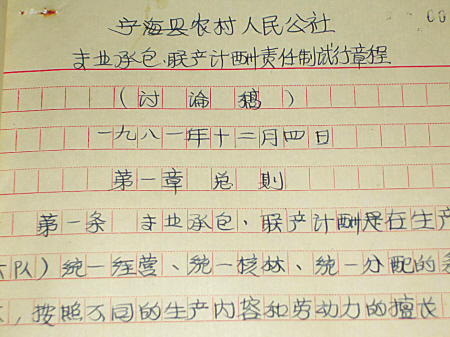 宁海县农村人民公社
专业承包、联产计酬责任制试行章程
（讨论稿）
一九八一年十二月四日
第一章 总则
第一条 专业承包、联产计酬是在生产
队）统一经营、统一核祘、统一分配的条
，按照不同的生产内容和劳动力的擅长